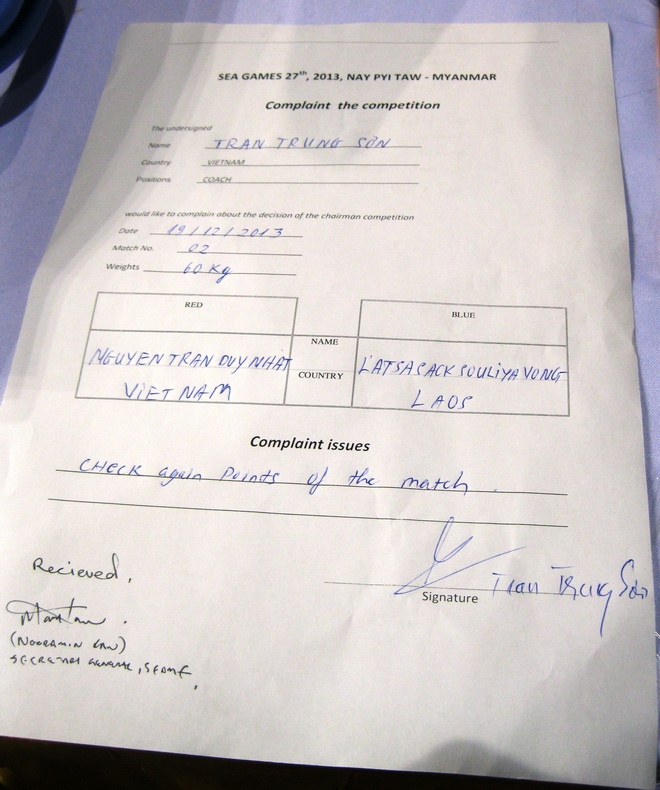 SEA GAMES 27th, 2013, NAY PYI TAW - MYANMAR
Complaint the competition
The undersigned
Name TRAN TRUNG SƠN
Country VIETNAM
Positions COACH
would like to complain about the decision of the chairman competition
Date 19/12/2013
Match No. 02
Weights 60 Kg
RED BLUE
NAME
NGUYEN TRAN DUY NHAT LATSASACK SOULIYAVONG
COUNTRY
VIET NAM LAOS
Complaint issues
CHECK again Points of the match.
Recieved,
Tran Trung Sơn
Signature
SECRETARY GENERAL,